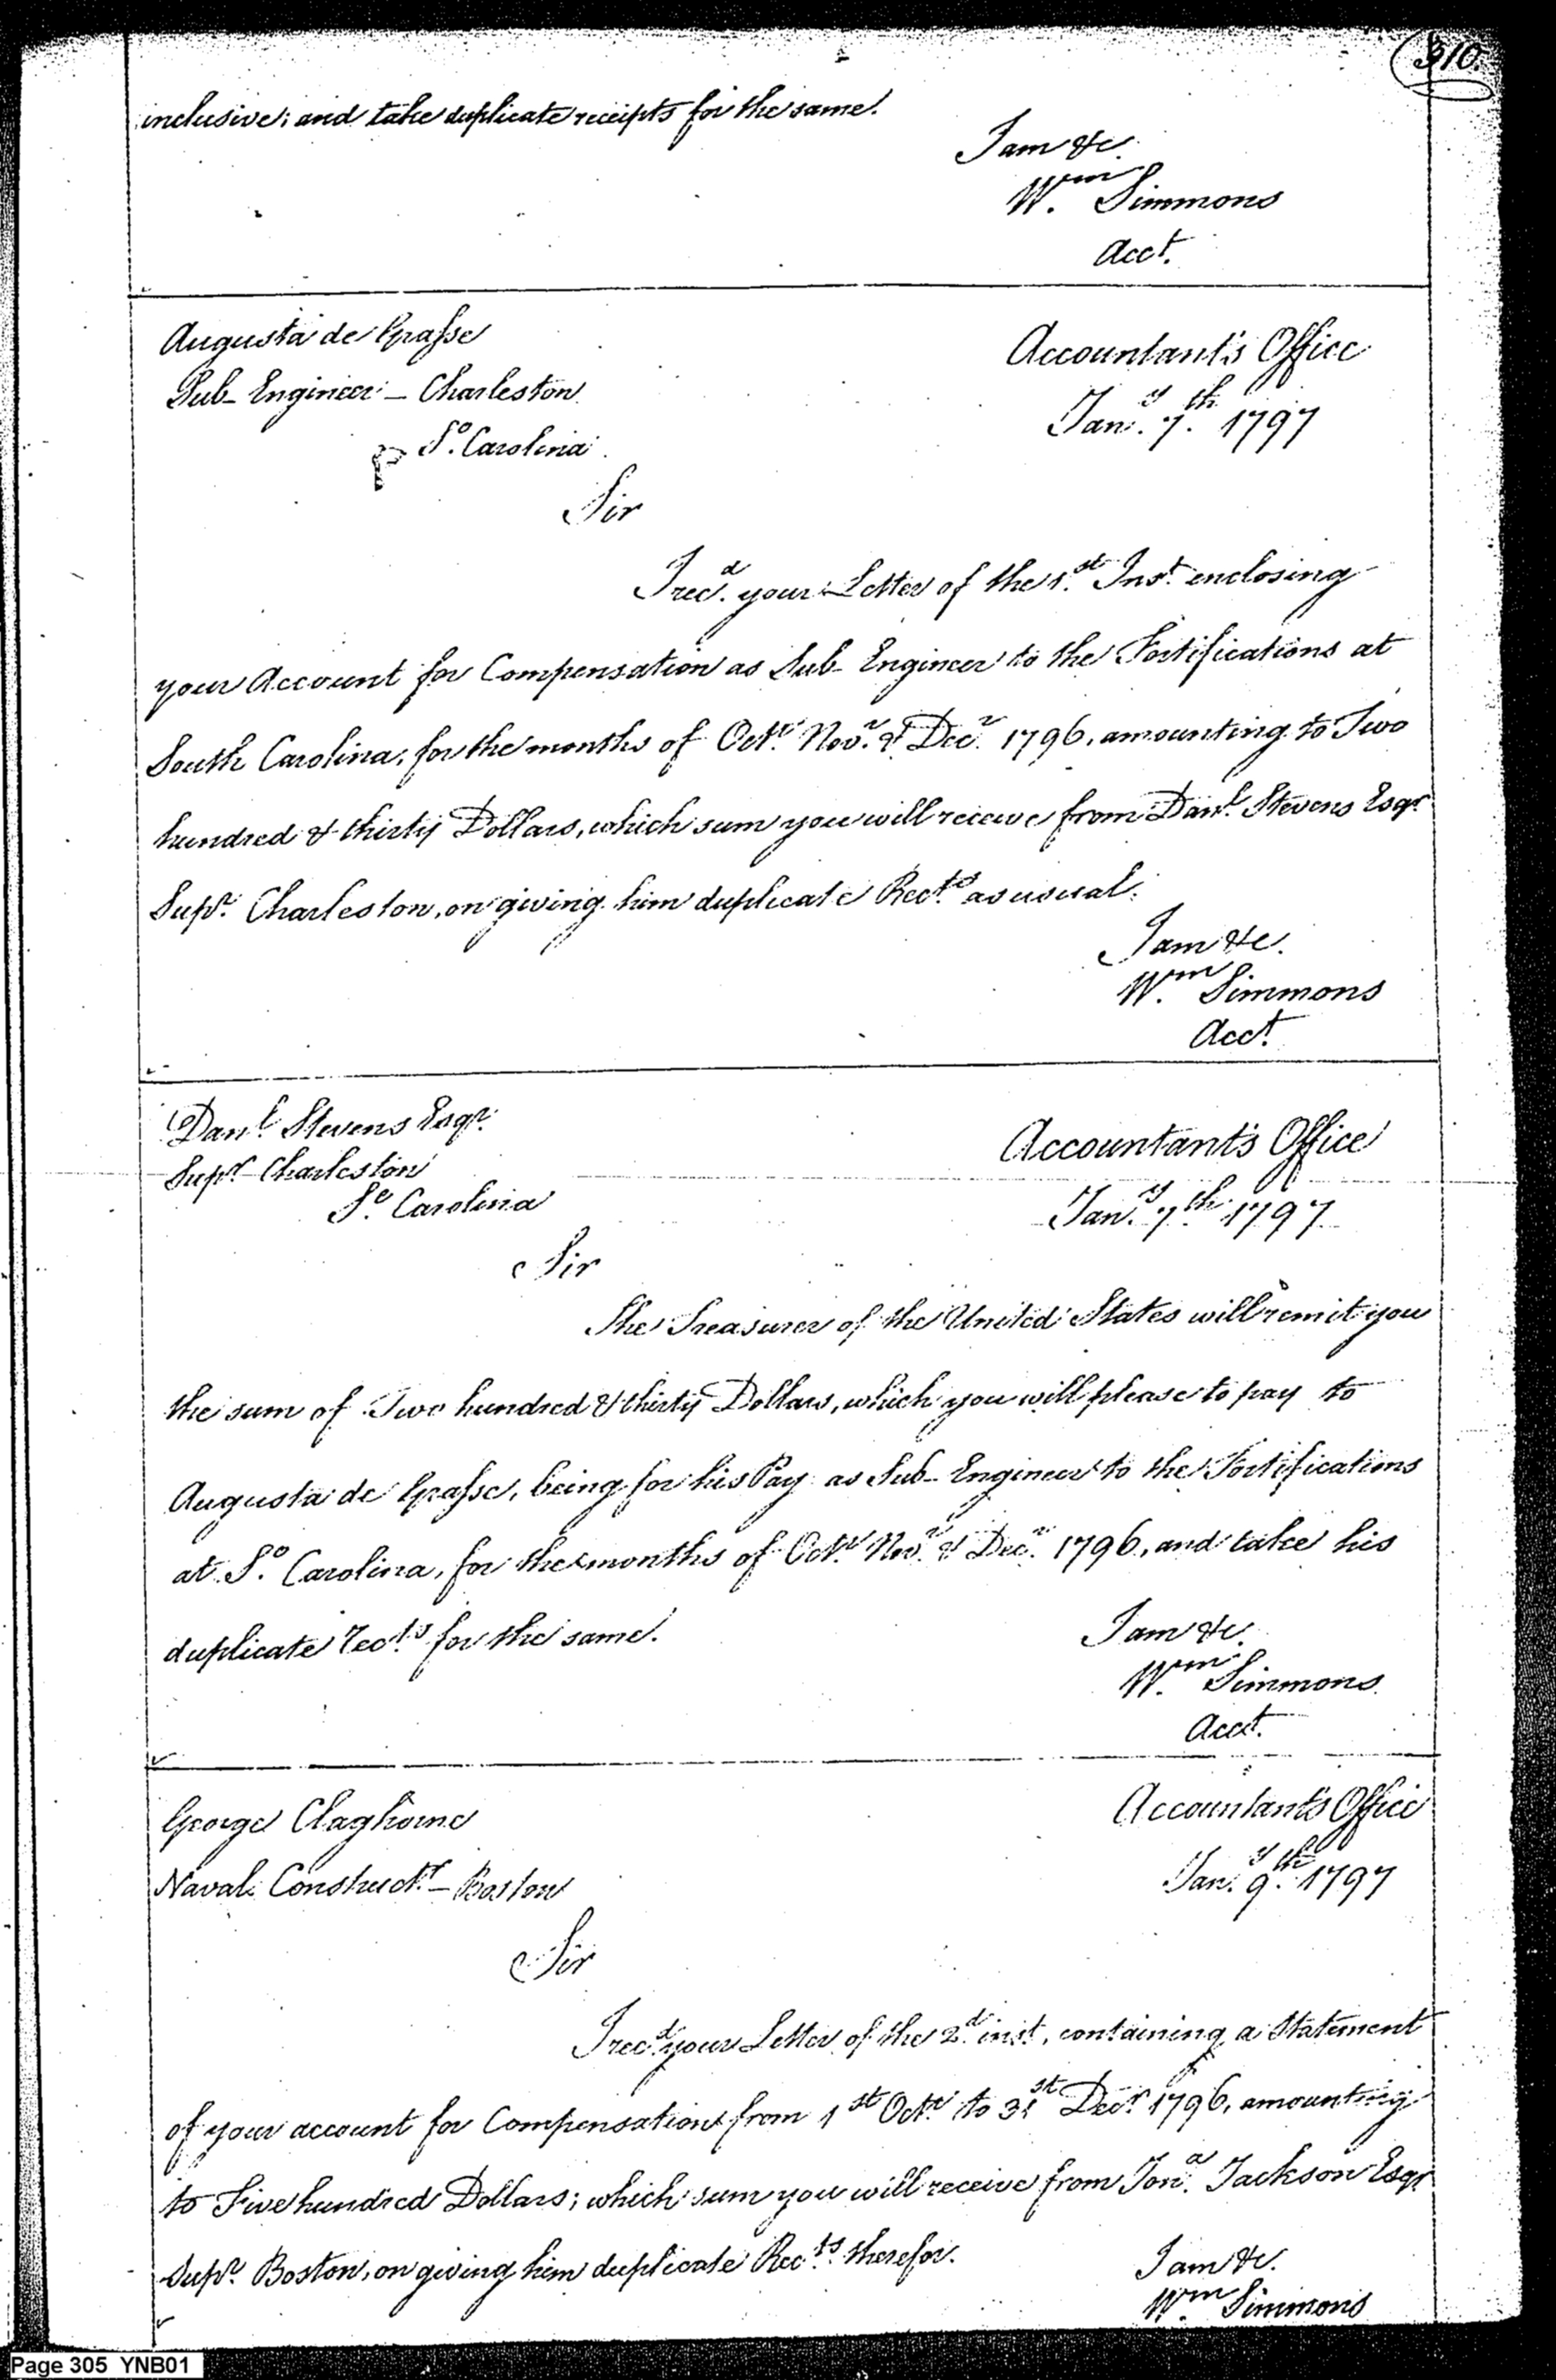 310.
inclusive; and take duplicate receipts for the same.
I am &c.
Wm. Simmons
Acct.
Augusta de Grasse
Sub-Engineer - Charleston
So. Carolina.
Accountant's Office
Jany. 7th. 1797
Sir
I recd. your Letter of the 1st. Inst. enclosing
your Account for Compensation as Sub-Engineer to the Fortifications at
South Carolina; for the months of Octr. Novr. & Decr. 1796, amounting to Two
hundred & thirty Dollars, which sum you will receive from Danl. Stevens Esqr
Supr. Charleston, on giving him duplicate Rects. as usual.
I am &c.
Wm. Simmons
Acct.
Danl. Stevens Esqr.
Supr. Charleston
So. Carolina
Accountant's Office
Jany. 7th. 1797
Sir
The Treasurer of the United States will remit you
the sum of Two hundred & thirty Dollars, which you will please to pay to
Augusta de Grasse, being for his Pay as Sub-Engineer to the Fortifications
at So. Carolina, for the months of Octr. Novr. & Decr. 1796, and take his
duplicate rects. for the same.
I am &c.
Wm. Simmons.
Acct.
George Claghorne
Naval Constructr. - Boston
Accountant's Office
Jany. 9th. 1797
Sir
I recd. your Letter of the 2d. inst, containing a Statement
of your account for Compensation from 1st Octr. to 31st Decr. 1796, amounting
to Five hundred Dollars; which sum you will receive from Jona. Jackson Esqr
Supr. Boston, on giving him duplicate Rects. therefor.
I am &c.
Wm. Simmons
Page 305 YNB01